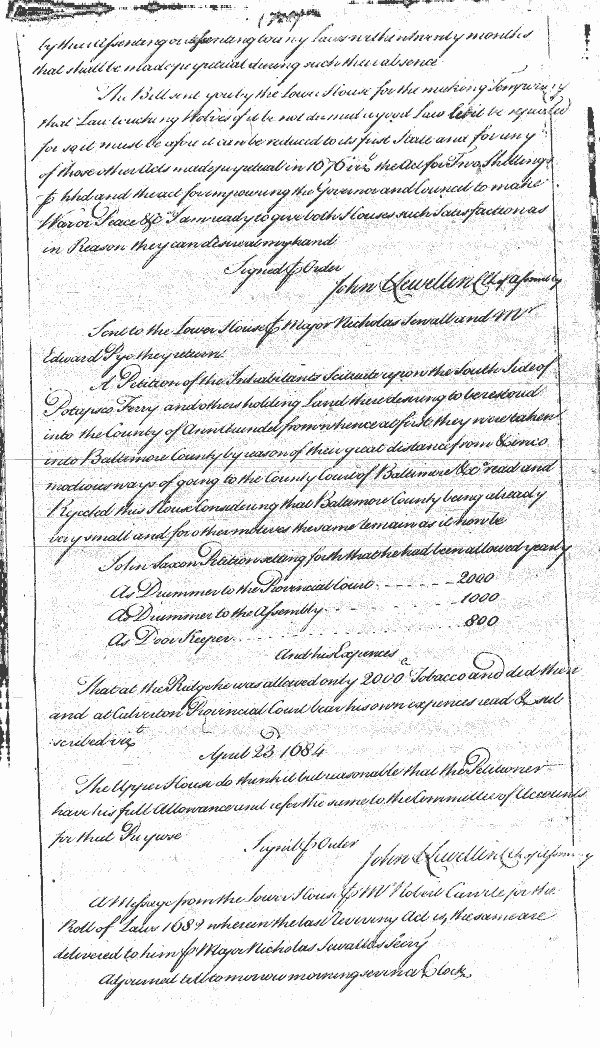 by their Assenting or dissenting to any Laws within twenty months
that shall be made perpetual during such their absence
The Bill sent you by the Lower House for the making Temporary
that Law touching Wolves if it be not deemed a good Law let it be repealed
for so it must be afore it can be reduced to its first State and for any
of those other Acts made perpetual in 1676 vizt the Act for Two Shillings
⅌ hhd and the act for empowring the Governor and Council to make
War or Peace &c I am ready to give both Houses such Satisfaction as
in Reason they can desire at my hand
Signed ⅌ Order
John Llewellin Clk of Assembly
Sent to the Lower House ⅌ Major Nicholas Sewall and Mr
Edward Pye they return
A Petition of the Inhabitants Scituate upon the South Side of
Potapsco Ferry and others holding Land there desiring to be restored
into the County of Annarundel from whence at first they were taken
into Baltimore County by reason of their great distance from & inco
modious ways of going to the County Court of Baltemore &ca read and
Rejected this House Considering that Baltemore County being already
very small and for other motives the same remain as it now be
John Saxon Petition setting forth that he had been allowed yearly
As Drummer to the Provincial Court - - - - - - 2000
As Drummer to the Assembly - - - - - - 1000
As Door Keeper - - - - - - 800
And his Expences
That at the Ridge he was allowed only 2000 Tobacco and did then
and at Calverton Provincial Court bear his own expences read & sub
scribed vizt
April 23d 1684
The Upper House do think it but reasonable that the Petitioner
have his full Allowance and refer the same to the Committee of Accounts
for that Purpose
Signd ⅌ Order
John Llewellin Clk of Assembly
A Message from the Lower House ⅌ Mr Robert Carvile for the
Roll of Laws 1682 wherein the last Reviving Act is, the same are
delivered to him ⅌ Major Nicholas Sewall's Secry
Adjourned till to morrow morning seven a Clock